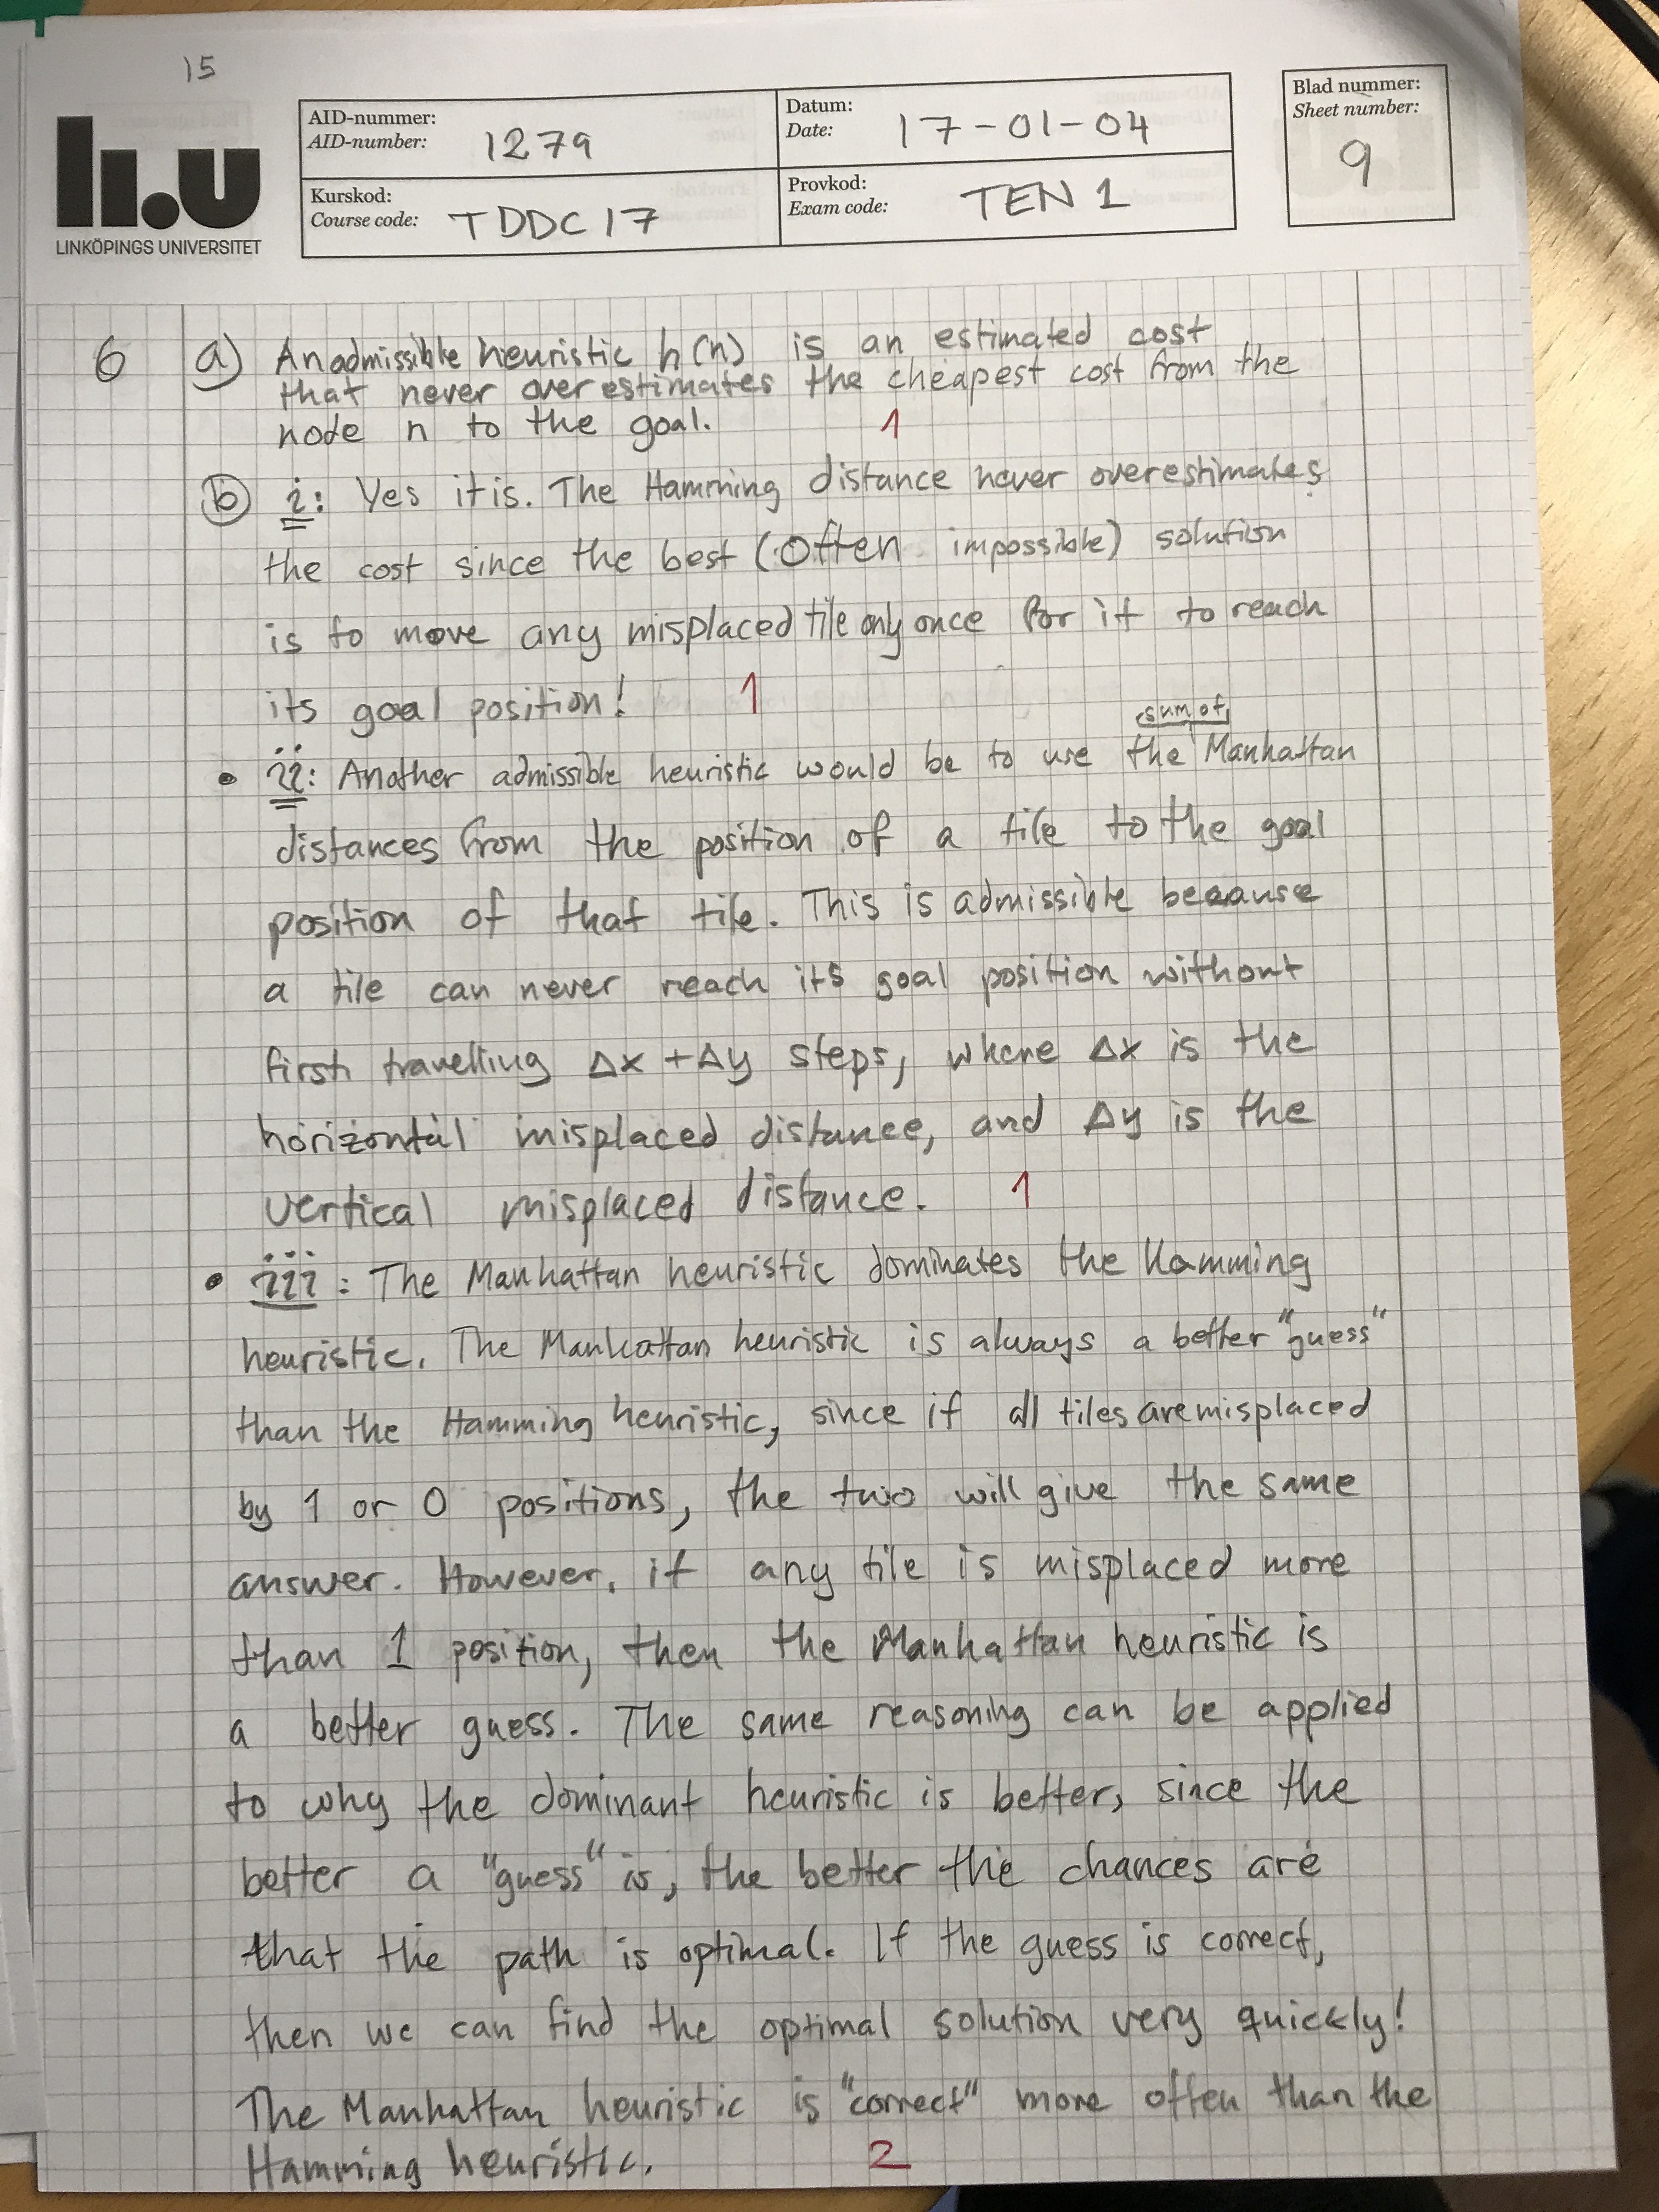 15
li.u
LINKÖPINGS UNIVERSITET
AID-nummer:
AID-number: 1279
Datum:
Date: 17-01-04
Kurskod:
Course code: TDDC17
Provkod:
Exam code: TEN1
Blad nummer:
Sheet number:
9
6 a) An admissible heuristic h(n) is an estimated cost
that never overestimates the cheapest cost from the
node n to the goal. 1
b) i: Yes it is. The Hamming distance never overestimates
the cost since the best (often impossible) solution
is to move any misplaced tile only once for it to reach
its goal position! 1
sum of
• ii: Another admissible heuristic would be to use the Manhattan
distances from the position of a tile to the goal
position of that tile. This is admissible because
a tile can never reach its goal position without
first travelling Δx + Δy steps, where Δx is the
horizontal misplaced distance, and Δy is the
vertical misplaced distance. 1
• iii: The Manhattan heuristic dominates the Hamming
heuristic. The Manhattan heuristic is always a better "guess"
than the Hamming heuristic, since if all tiles are misplaced
by 1 or 0 positions, the two will give the same
answer. However, if any tile is misplaced more
than 1 position, then the Manhattan heuristic is
a better guess. The same reasoning can be applied
to why the dominant heuristic is better, since the
better a "guess" is, the better the chances are
that the path is optimal. If the guess is correct,
then we can find the optimal solution very quickly!
The Manhattan heuristic is "correct" more often than the
Hamming heuristic. 2